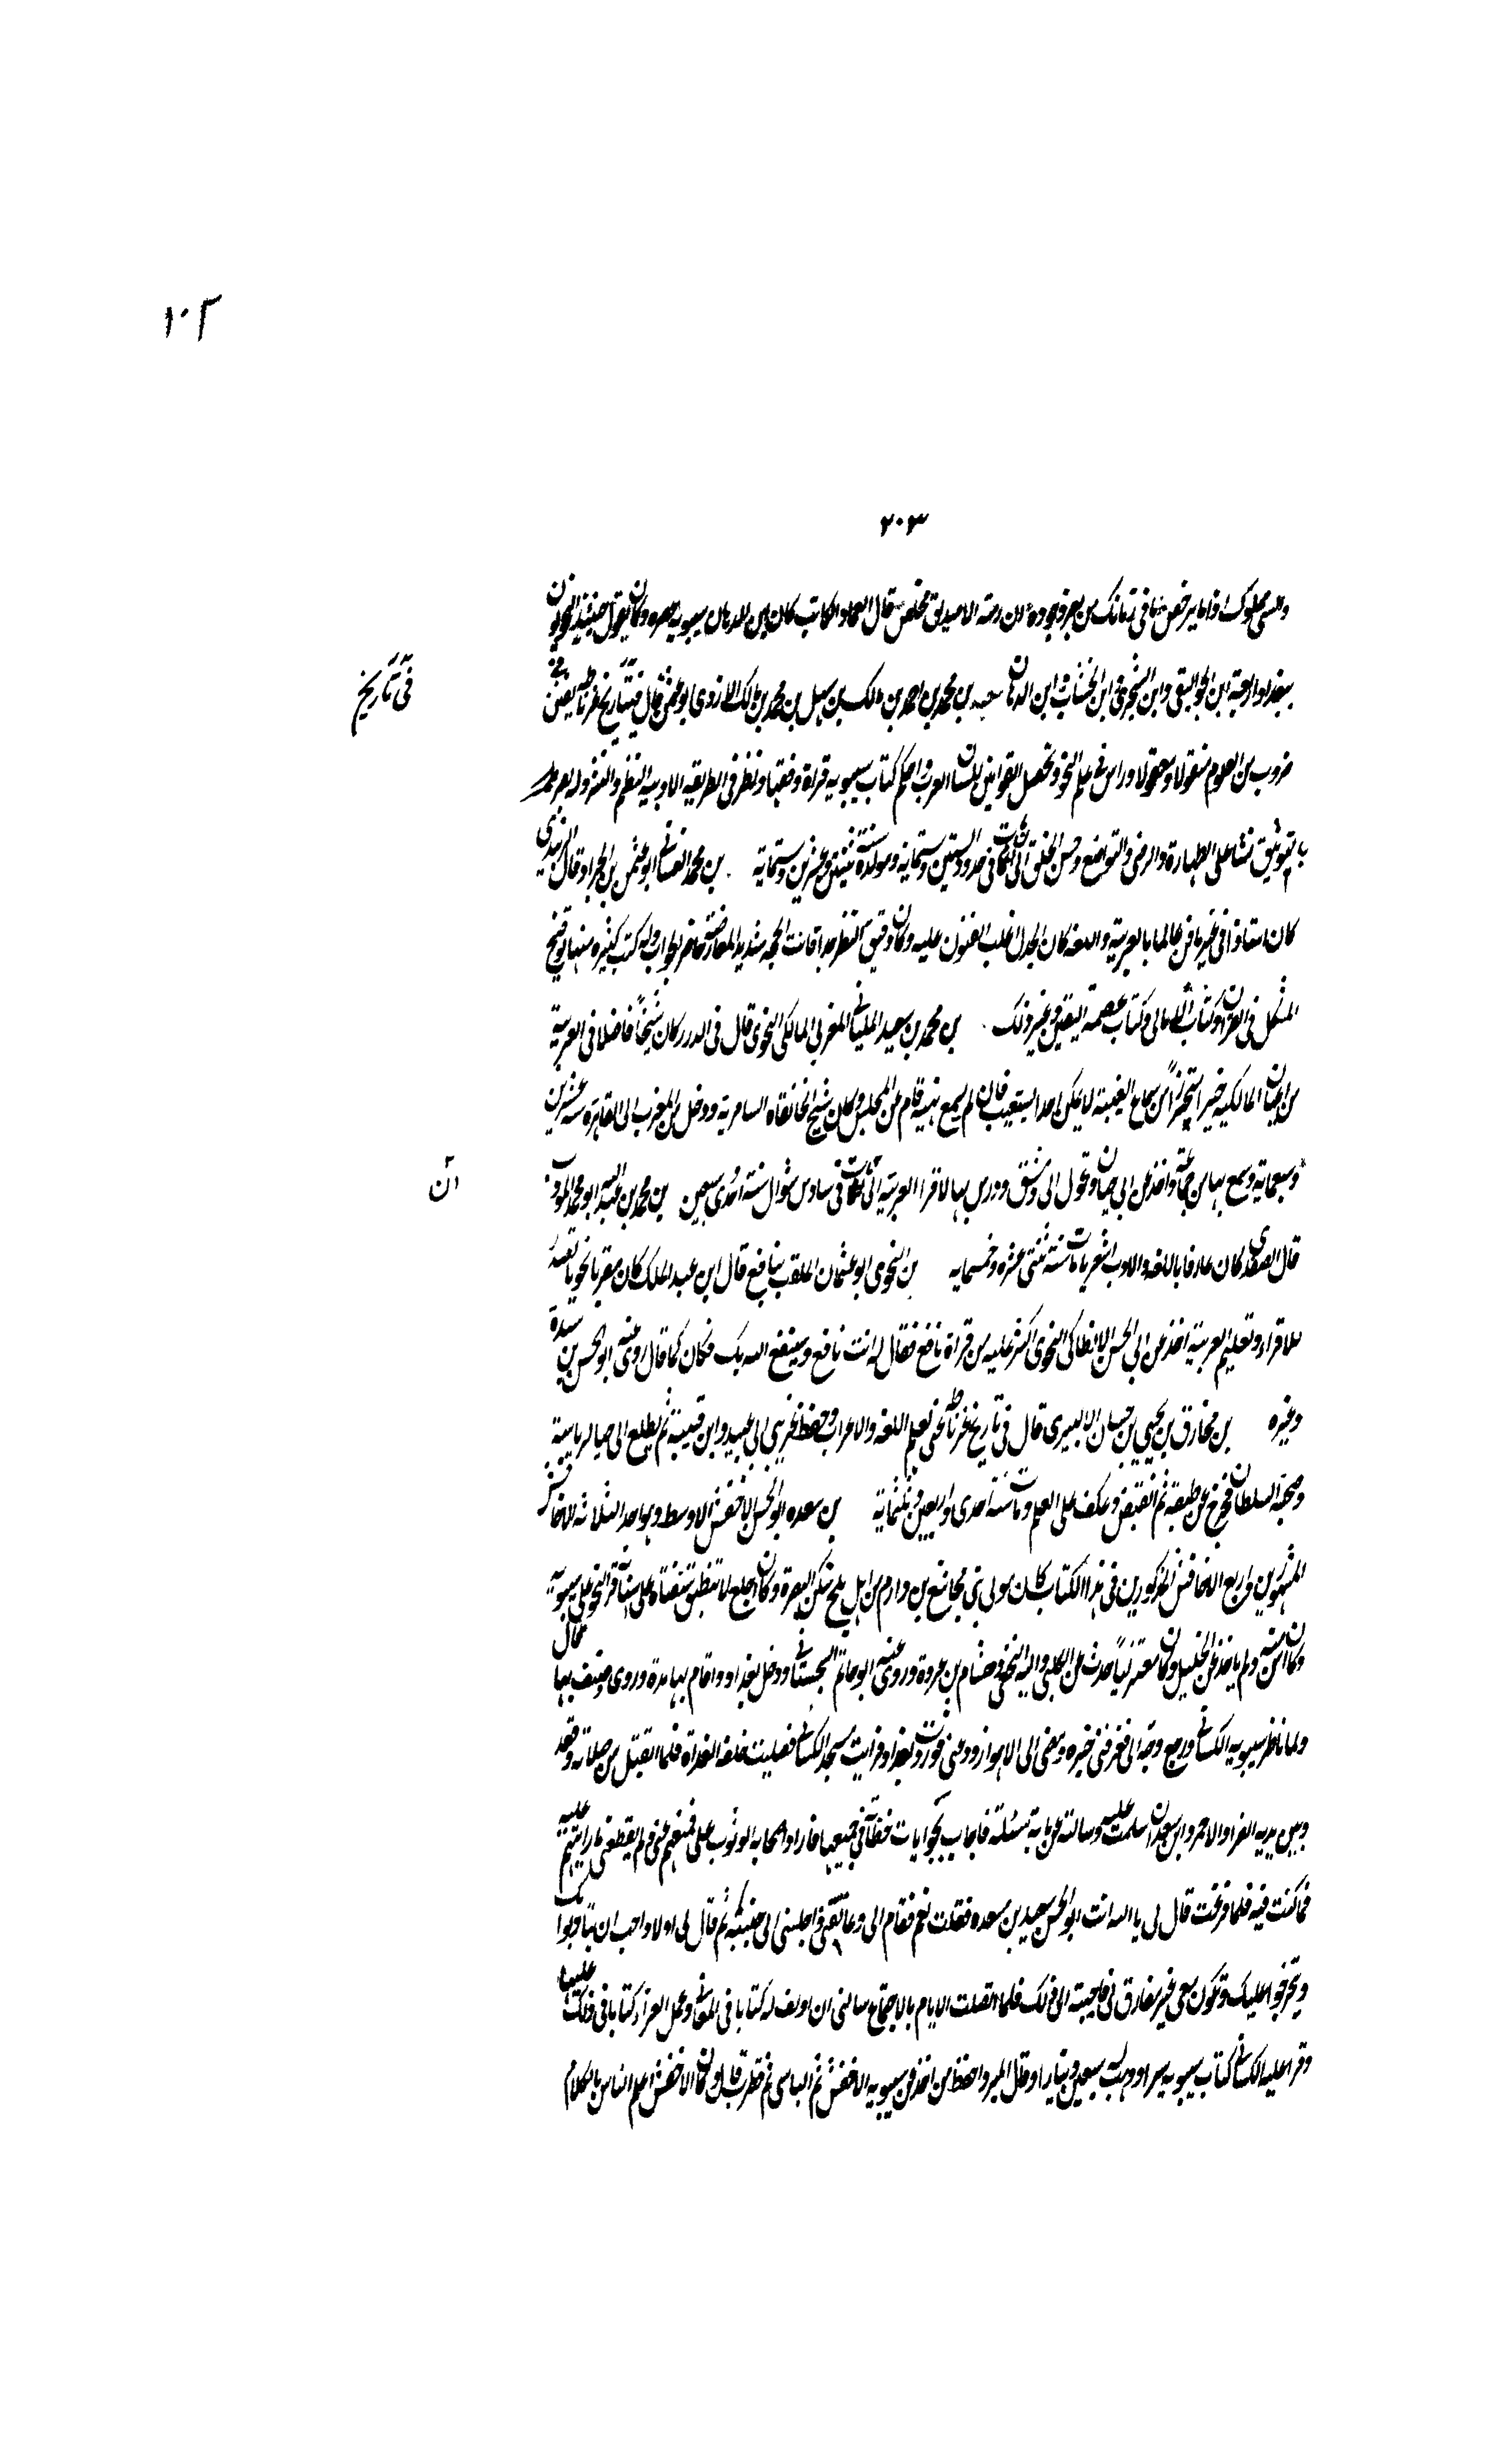 ١٠٢
٢٠٣
قال العماد الكاتب كان ابن الدهان سيبويه عصره وكان يقول حينئذ النحويون
ببغداد اربعة ابن الجواليقى وابن الشجرى وابن الخشاب وابن الدهان سعيد بن محمد بن احمد بن مالك بن سهل بن محمد بن مالك الازدى ابو عثمن قال فى تاريخ غرناطه يفتن فى
فى تاريخ
ضروب من العلوم منقولا ومعقولا وراس فى علم النحو وتحصيل القوانين للسان العرب واحكم كتاب سيبويه قراة وفقها ونظر فى الطريقه الادبيه النظم والنثر وله بصر
بالتوثيق نشا على الطهارة والتواضع وحسن الخلق الى ان مات فى حدود الستين وستمايه ومولده سنة ثنتين وعشرين وستماية بن محمد الغسانى ابو عثمن بن الحداد وقال الزبيدى
كان استاذا فى غير ما فن عالما بالعربية واللغه كان الجدل اغلب الفنون عليه وكان دقيق النظر جدا ثابت الحجه شديد المعارضة حاضر الجواب وله كتب كثيره منها توضيح
المشكل فى القران وكتاب الامالى وكتاب عصمة النبيين وغير ذلك بن محمد بن سعيد المليانى المغربى المالكى النحوى قال فى الدرر كان شيخا فاضلا فى العربية
من اعيان المالكيه خيرا متحرزا من سماع الغيبة لا يمكن احدا يستغيب فان لم يسمع نهيه قام من المجلس وكان شيخ الخانقاه السامرية ودخل من المغرب الى القاهرة سنه عشرين
وسبعمايه وسمع بها من جماعة واخذ عن ابى حيان وتحول الى دمشق ودرس بها الاقرا العربية الى ان مات فى سادس شوال سنة احدى سبعين بن محمد بن عبد الله ابو محمد المودب
ان
قال الصفدى كان عارفا باللغه والادب اشعر مات سنة ثنتى عشره وخمسمايه بن النحوى ابو عثمان الملقب بنافع قال ابن عبد الملك كان مقريا نحويا تصدر
للاقراء وتعليم العربية اخذ عن ابى الحسن الانطاكى النحوى اكثر عليه من قراة نافع فقال له انت نافع وسينفع الله بك فكان كما قال روى عنه ابو الحسن بن سيدة
وغيره بن مخارق بن يحيى بن حسان الالبيرى قال فى تاريخ غرناطه عنى بعلم اللغه والاعراب وحفظ غريبى ابى عبيد وابن قتيبة ثم تطلع الى حيا الرياسة
وصحبة السلطان فخرج عن طبقته ثم انقبض وعكف على العلم ومات سنة احدى واربعين وثلثماية بن مسعده ابو الحسن الاخفش الاوسط وهو احد الثلاثه الاخافش
المشهورين ورابع الاخافش المذكورين فى هذا الكتاب كان مولى بنى مجاشع بن دارم من اهل بلخ سكن البصرة وكان اجلع لا تنطبق شفتاه على اسنانه قرا النحو على سيبويه
وكان اسن منه ولم ياخذ عن الخليل وكان معتزليا حدث عن الكلبى والنخعى وهشام بن عروة وروى عنه ابو حاتم السجستانى ودخل بغداد واقام بها مدة وروى وصنف بها قال
ولما ناظر سيبويه الكسائى ورجع وجه الى فعرفنى خبره ومضى الى الاهواز وودعنى فوردت بغداد فرايت مسجد الكسائى فصليت خلفه الغداة فلما انفتل من صلاته وقعد
وبين يديه الفرا والاحمر وابن سعدان سلمت عليه وسالته عن مائة مسئلة فاجاب بجوابات خطاته فى جميعها فاراد اصحابه الوثوب على فمنعهم عنى ولم يقطعنى ما رايتهم عليه
فما كنت فيه فلما فرغت قال لى بالله انت ابو الحسن سعيد بن مسعده فقلت نعم فقام الى وعانقنى واجلسنى الى جنبه ثم قال لى اولاد احب ان يتادبوا بك
ويتخرجوا عليك وتكون معى غير مفارق لى فاجبته الى ذلك فلما اتصلت الايام بالاجتماع سالنى ان اولف له كتابا فى المعانى وعمل الفراء كتابا فى ذلك عليهما
وقرا عليه الكسائى كتاب سيبويه سرا ووهب له سبعين دينارا وقال المبرد احفظ من اخذ عن سيبويه الاخفش ثم الناشى ثم قطرب قال وكان الاخفش اعلم الناس بالكلام